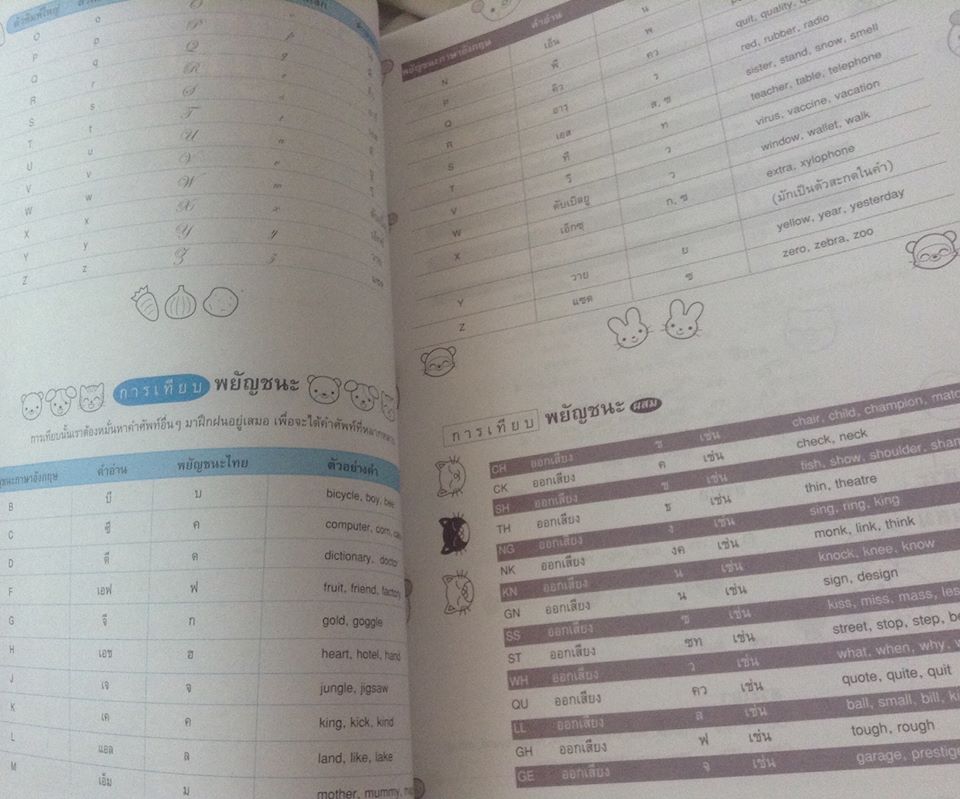 ตัวพิมพ์ใหญ่
O o O o
P p P p
Q q Q q
R r R r
S s S s
T t T t
U u U u
V v V v
W w W w
X x X x
Y y Y y วาย
Z z Z z แซด
การเทียบ พยัญชนะ
การเทียบนั้นเราต้องหมั่นหาคำศัพท์อื่นๆ มาฝึกฝนอยู่เสมอ เพื่อจะได้คำศัพท์ที่หลากหลาย
คำอ่าน พยัญชนะไทย ตัวอย่างคำ
B บี บ bicycle, boy, bee
C ซี ค computer, corn,
D ดี ด dictionary, doctor
F เอฟ ฟ fruit, friend, factory
G จี ก gold, goggle
H เอช ฮ heart, hotel, hand
J เจ จ jungle, jigsaw
K เค ค king, kick, kind
L แอล ล land, like, lake
M เอ็ม ม mother, mummy,
พยัญชนะภาษาอังกฤษ คำอ่าน
N เอ็น น
P พี พ
Q คิว คว quit, quality,
R อาร์ ร red, rubber, radio
S เอส ส, ซ sister, stand, snow, smell
T ที ท teacher, table, telephone
V วี ว virus, vaccine, vacation
W ดับเบิลยู ว window, wallet, walk
X เอ็กซ์ ก, ซ extra, xylophone
(มักเป็นตัวสะกดในคำ)
Y วาย ย yellow, year, yesterday
Z แซด ซ zero, zebra, zoo
การเทียบ พยัญชนะ ผสม
CH ออกเสียง ช เช่น chair, child, champion,
CK ออกเสียง ค เช่น check, neck
SH ออกเสียง ช เช่น fish, show, shoulder,
TH ออกเสียง ธ เช่น thin, theatre
NG ออกเสียง ง เช่น sing, ring, king
NK ออกเสียง งค เช่น monk, link, think
KN ออกเสียง น เช่น knock, knee, know
GN ออกเสียง น เช่น sign, design
SS ออกเสียง ซ เช่น kiss, miss, mass,
ST ออกเสียง ซท เช่น street, stop, step,
WH ออกเสียง ว เช่น what, when, why,
QU ออกเสียง คว เช่น quote, quite, quit
LL ออกเสียง ล เช่น ball, small, bill,
GH ออกเสียง ฟ เช่น tough, rough
GE ออกเสียง จ เช่น garage, prestige